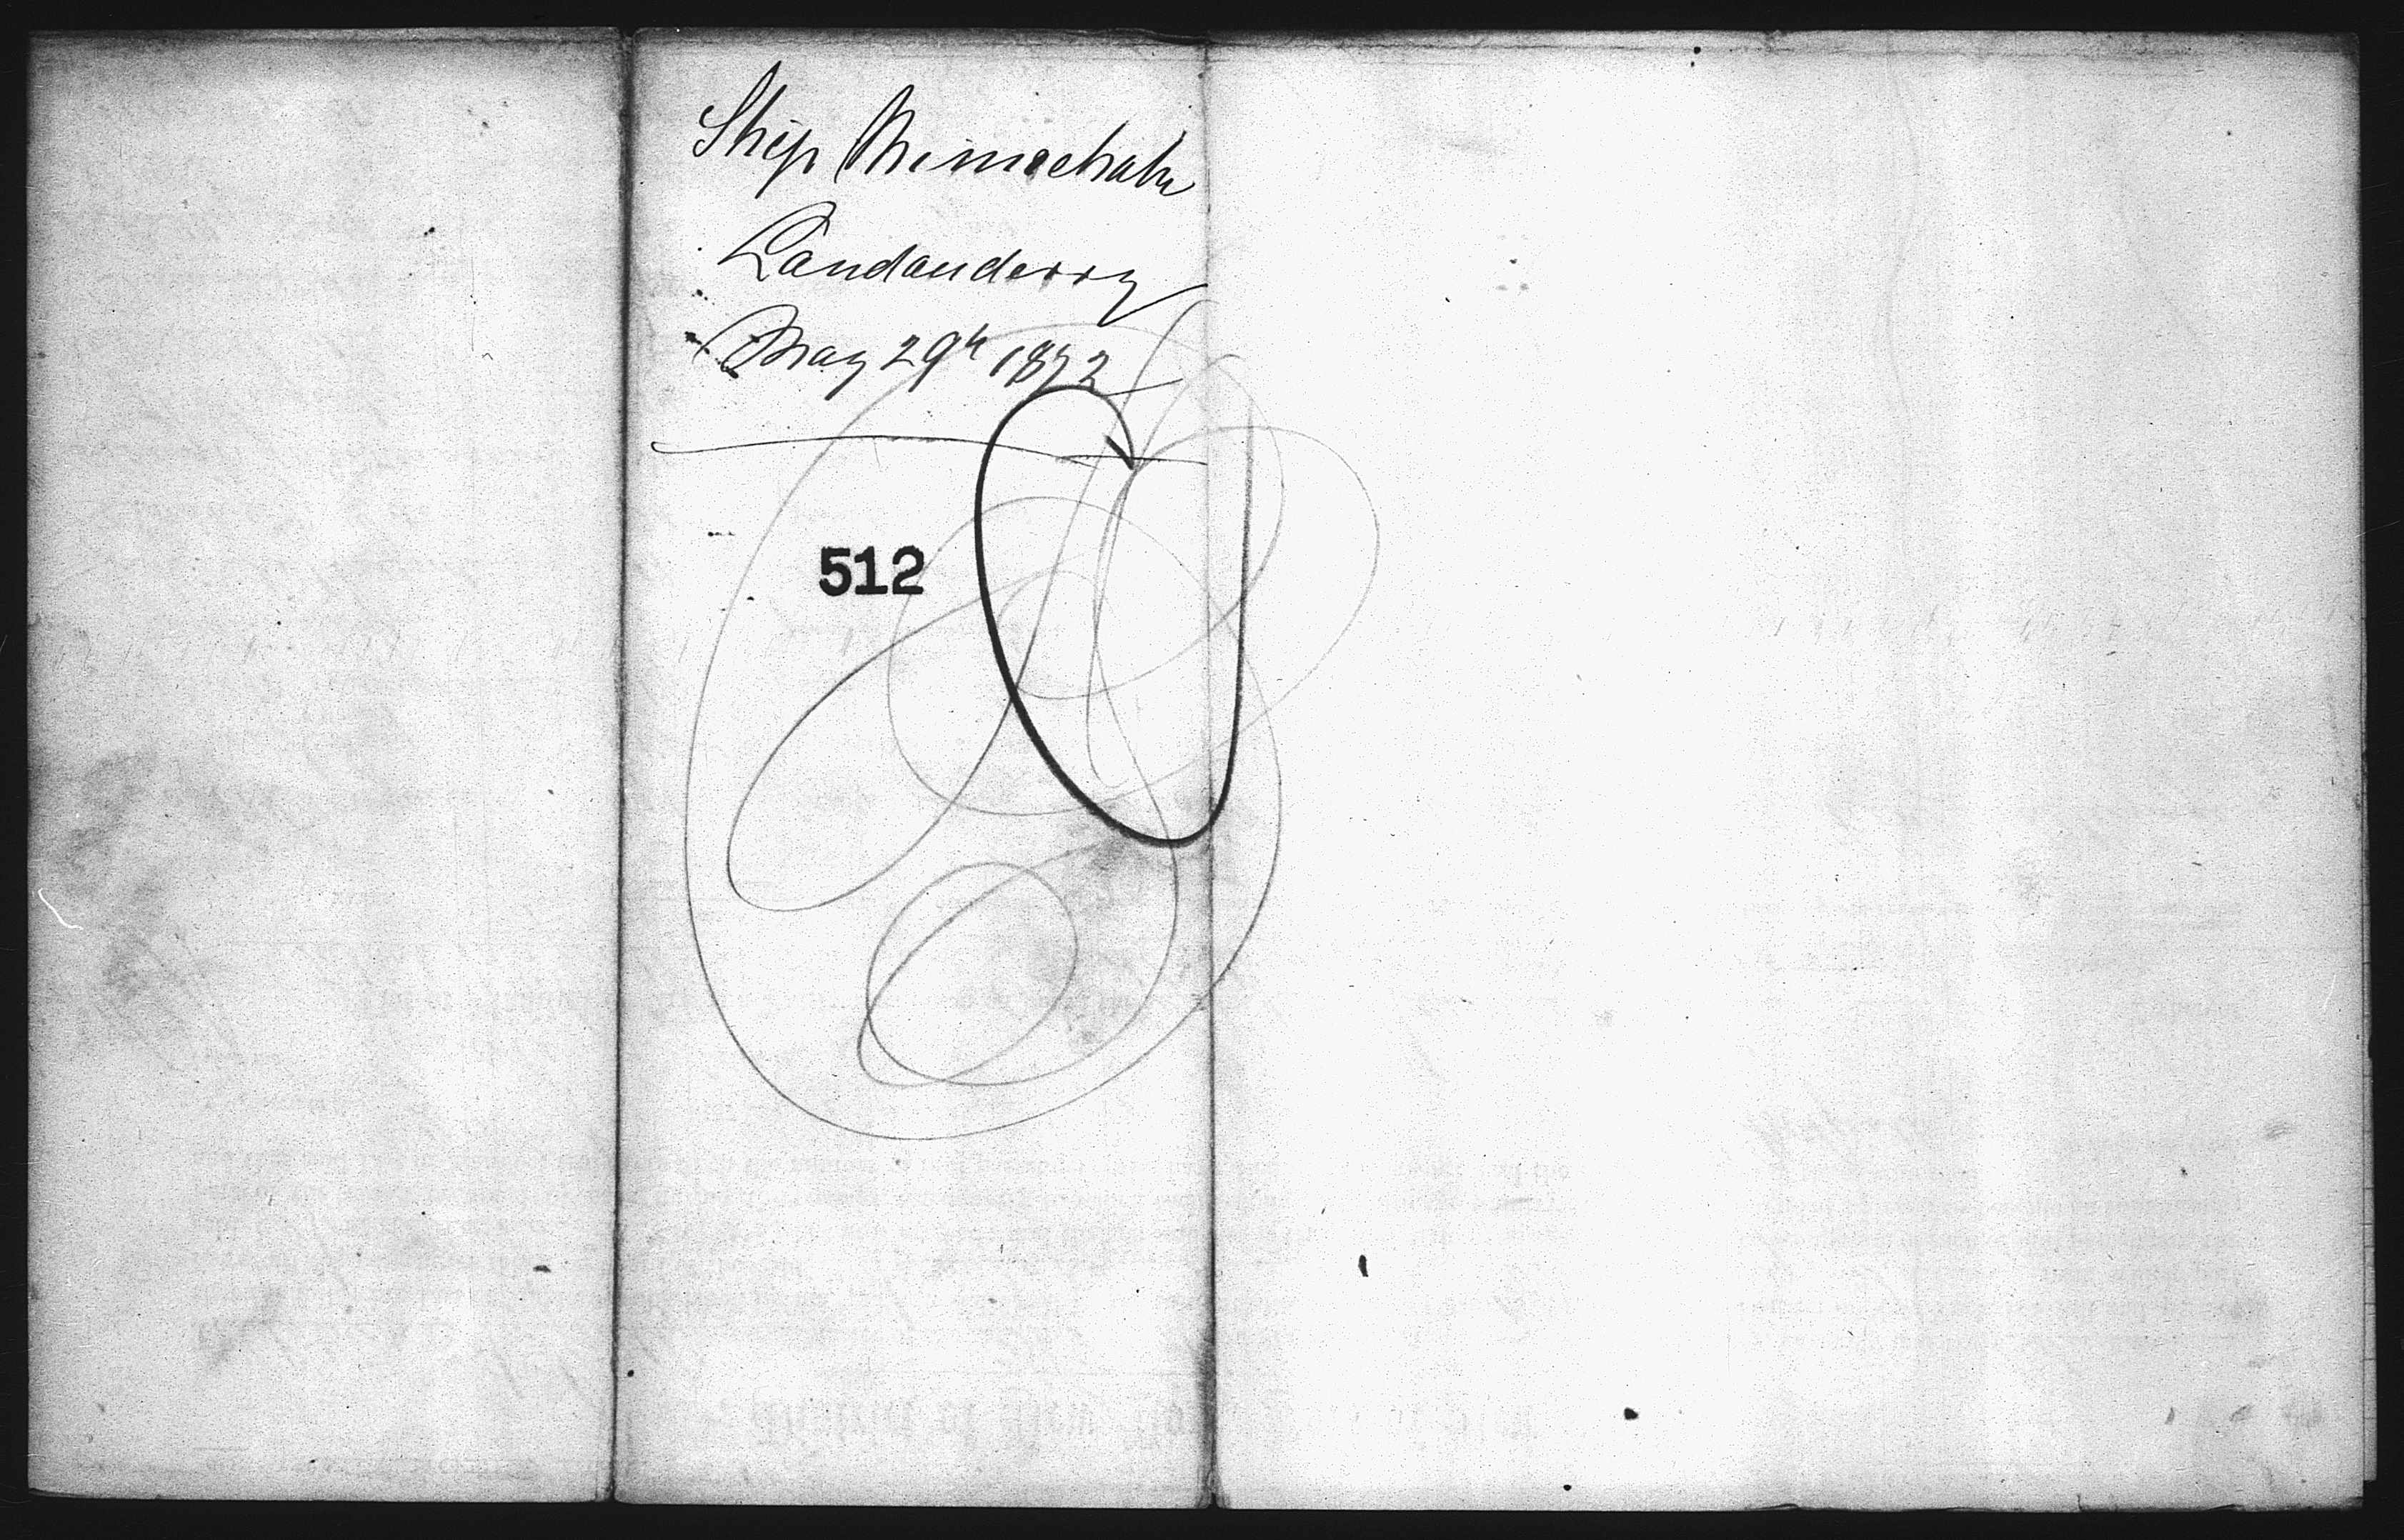 Ship Minnehaha
Londonderry
May 29th 1872
512